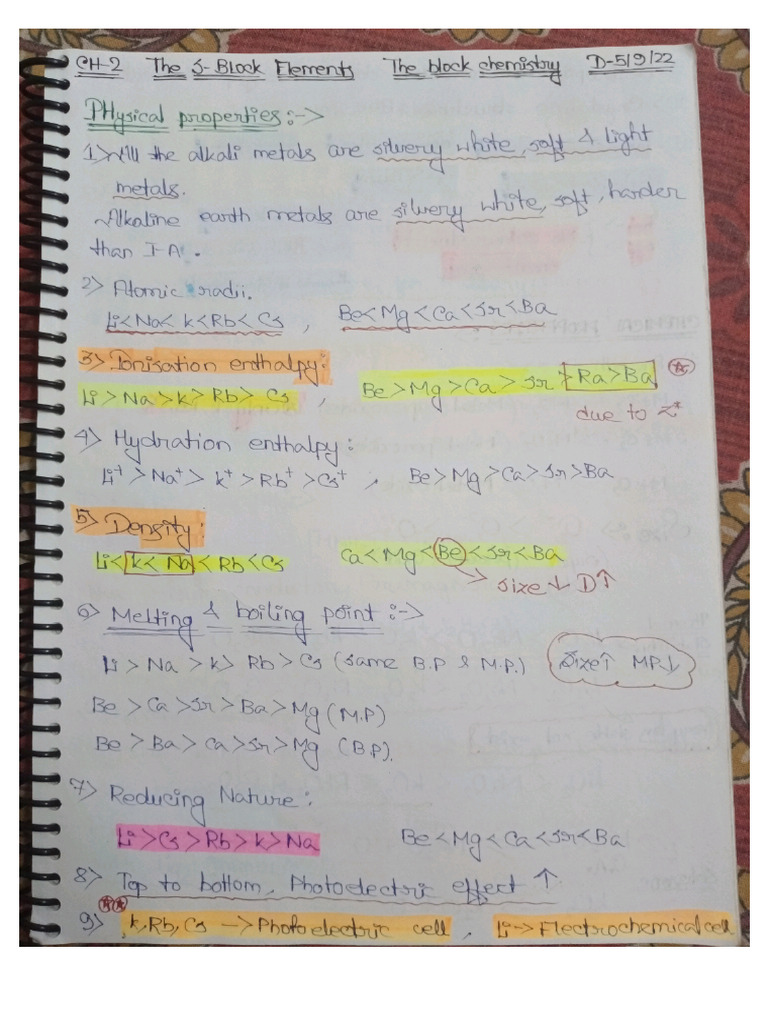 CH-2 The S-Block Elements The block chemistry D-5/9/22
PHysical properties:->
1) All the alkali metals are silvery white, soft & light
metals.
Alkaline earth metals are silvery white, soft, harder
than I-A.
2) Atomic radii.
Li<Na<k<Rb<Cs , Be<Mg<Ca<Sr<Ba
3) Ionisation enthalpy:
Li>Na>k>Rb>Cs , Be>Mg>Ca>Sr>Ra>Ba
due to Z*
4) Hydration enthalpy:
Li⁺>Na⁺>k⁺>Rb⁺>Cs⁺ , Be>Mg>Ca>Sr>Ba
5) Density:
Li<k<Na<Rb<Cs Ca<Mg<Be<Sr<Ba
size↓ D↑
6) Melting & boiling point:->
Li>Na>k>Rb>Cs (same B.P & M.P.) Size↑ MP↓
Be>Ca>Sr>Ba>Mg (M.P)
Be>Ba>Ca>Sr>Mg (B.P).
7) Reducing Nature:
Li>Cs>Rb>k>Na Be<Mg<Ca<Sr<Ba
8) Top to bottom, Photoelectric effect ↑
9) k,Rb,Cs -> Photoelectric cell , Li-> Electrochemical cell